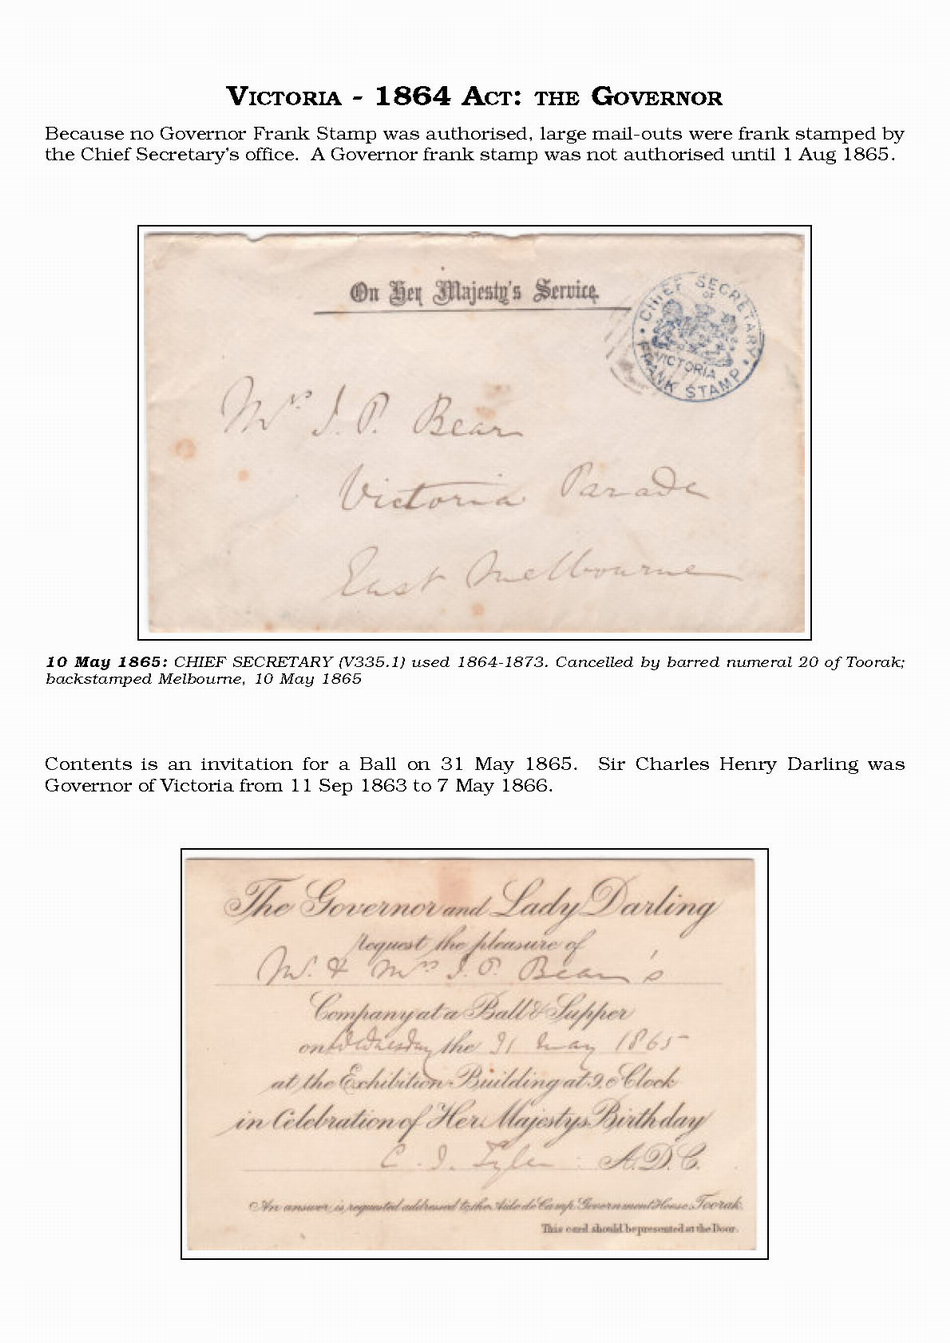 VICTORIA - 1864 ACT: THE GOVERNOR
Because no Governor Frank Stamp was authorised, large mail-outs were frank stamped by
the Chief Secretary's office. A Governor frank stamp was not authorised until 1 Aug 1865.
On Her Majesty's Service.
CHIEF SECRETARY
OF
VICTORIA
FRANK STAMP
Mrs J. P. Bear
Victoria Parade
East Melbourne
10 May 1865: CHIEF SECRETARY (V335.1) used 1864-1873. Cancelled by barred numeral 20 of Toorak;
backstamped Melbourne, 10 May 1865
Contents is an invitation for a Ball on 31 May 1865. Sir Charles Henry Darling was
Governor of Victoria from 11 Sep 1863 to 7 May 1866.
The Governor and Lady Darling
request the pleasure of
Mr. & Mrs J. P. Bear's
Company at a Ball & Supper
on Wednesday the 31 May 1865
at the Exhibition Building at 9 o'Clock
in Celebration of Her Majestys Birthday
C. J. A.D.C.
An answer is requested addressed to the Aide de Camp Government House, Toorak.
This card should be presented at the Door.